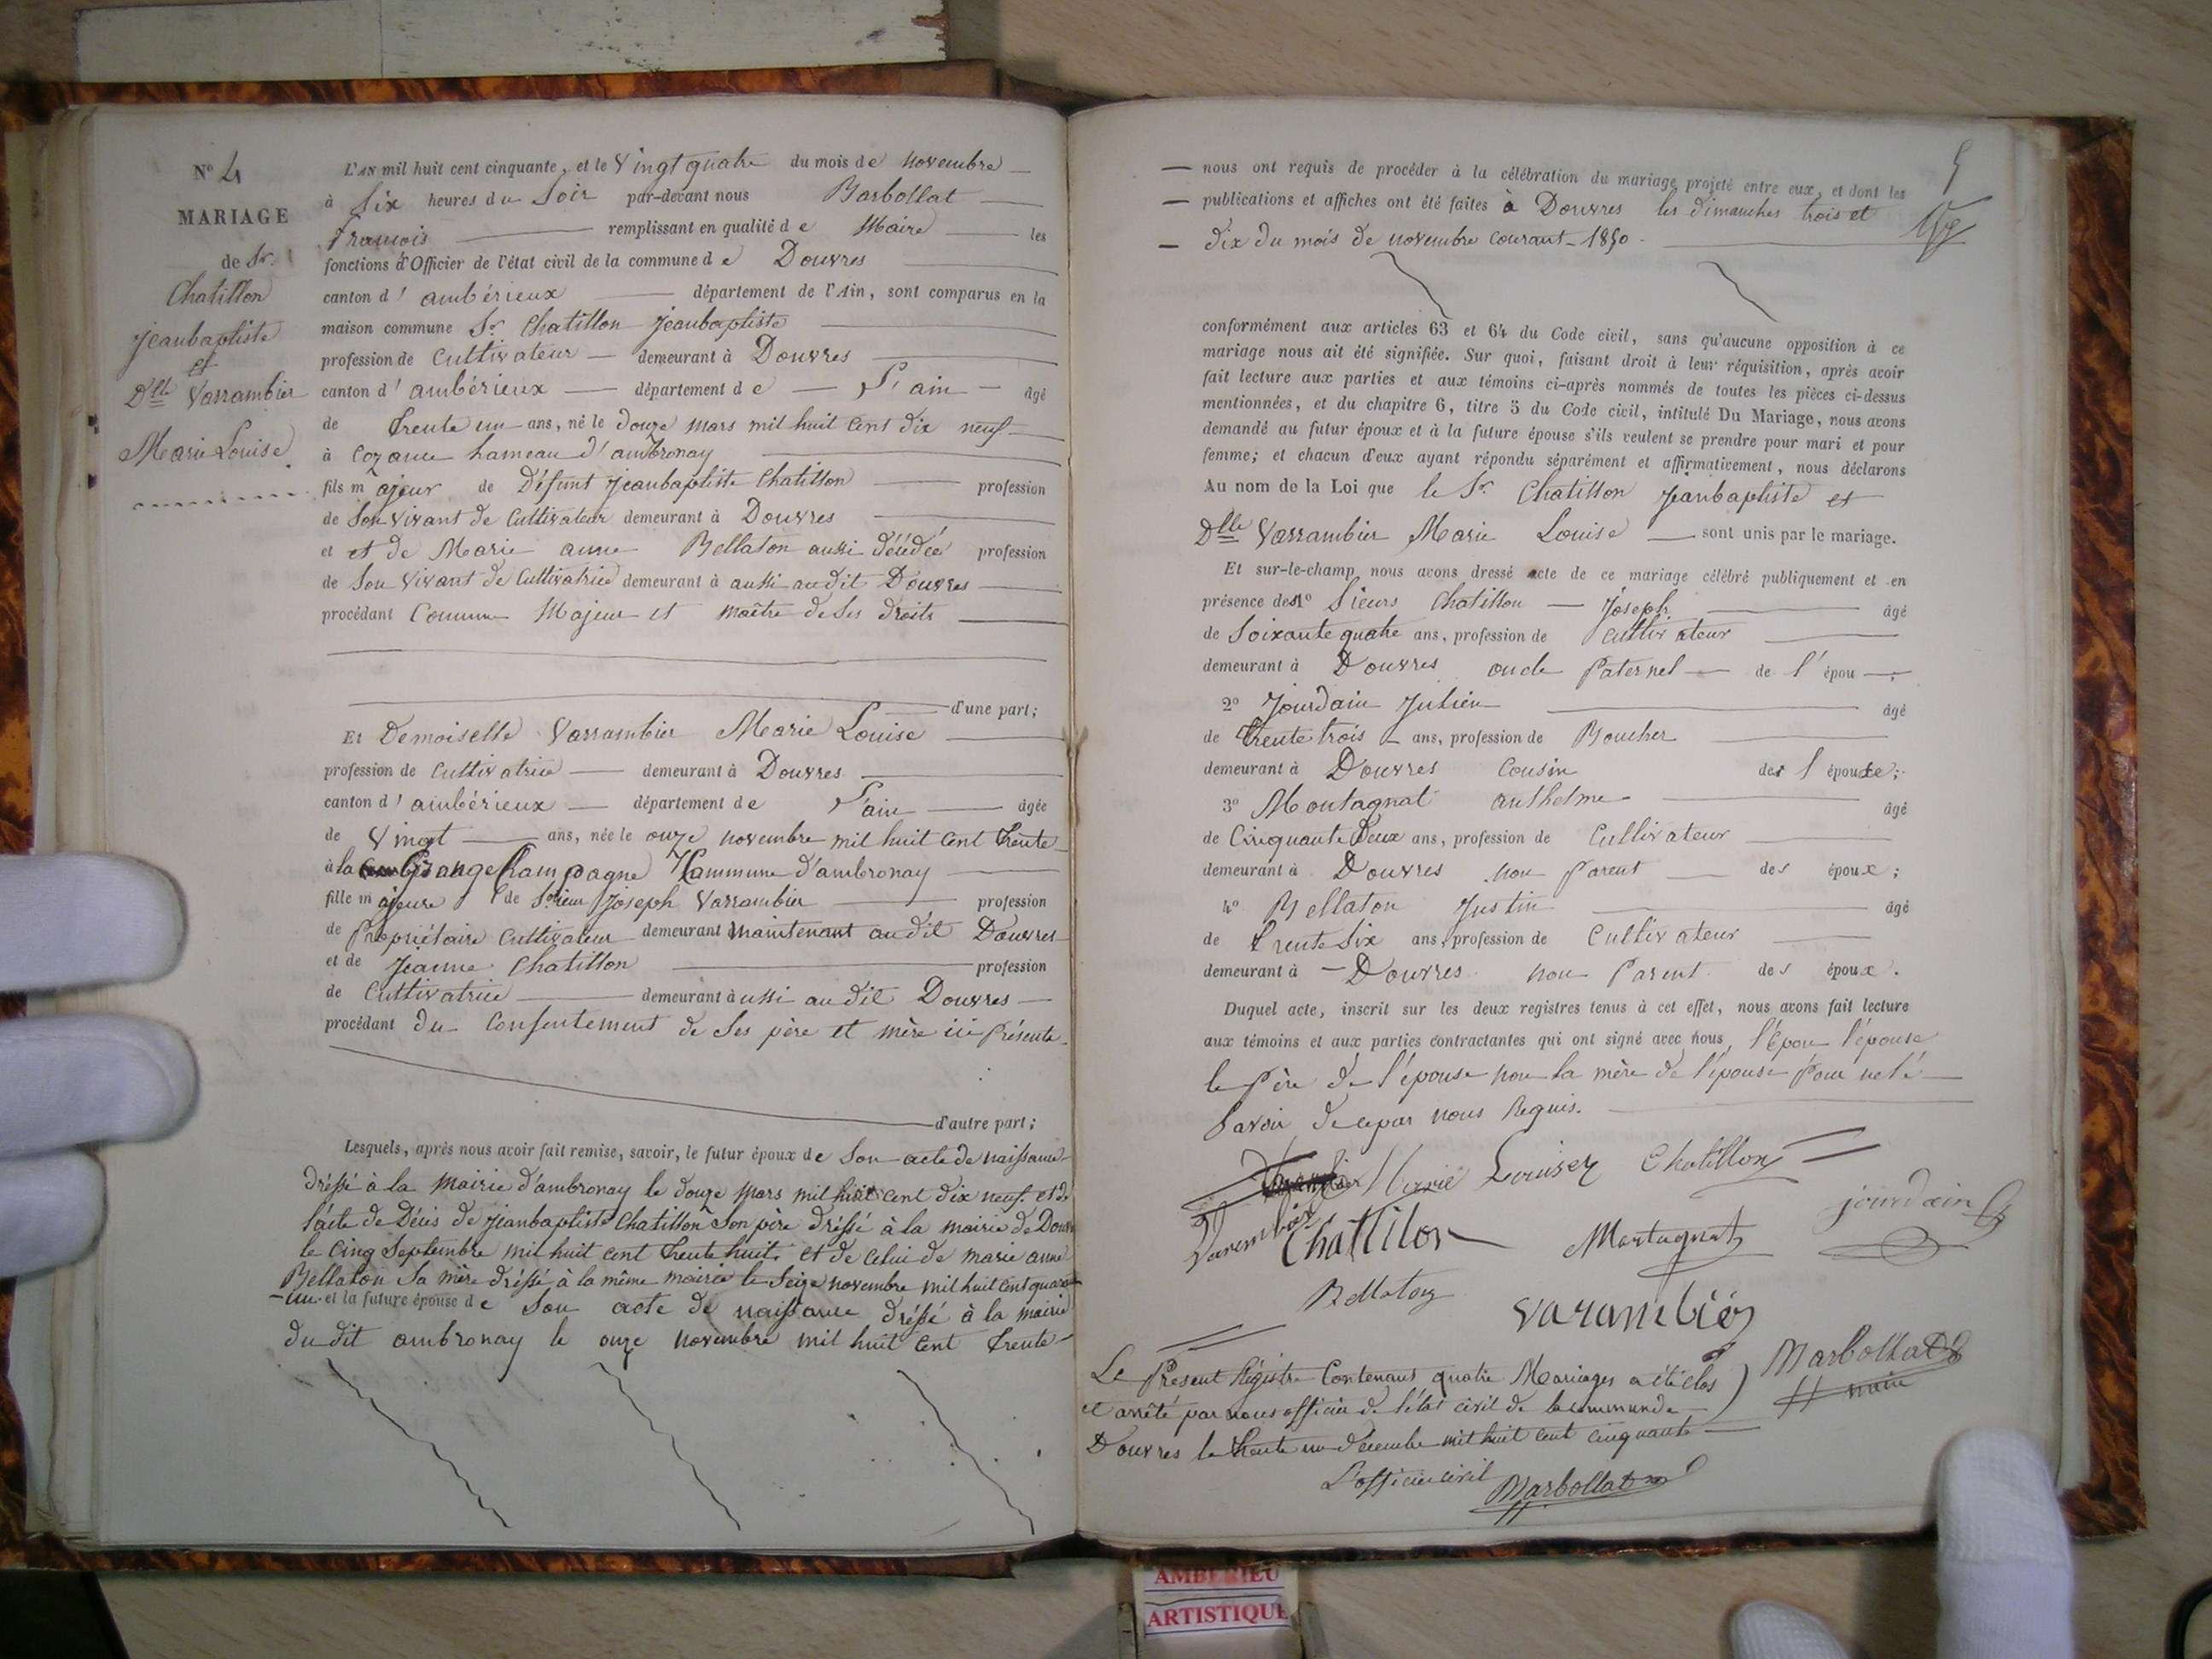 N° 4
MARIAGE
de Sr.
Chatillon
Jeanbaptiste
et
Dlle Varrambier
Marie Louise
L'AN mil huit cent cinquante, et le Vingt quatre du mois de novembre
à Six heures du Soir par-devant nous Barbollat
François remplissant en qualité de Maire les
fonctions d'Officier de l'état civil de la commune de Douvres
canton d'ambérieux département de l'Ain, sont comparus en la
maison commune Sr. Chatillon Jeanbaptiste
profession de Cultivateur demeurant à Douvres
canton d'ambérieux département de L'ain âgé
de trente un ans, né le douze mars mil huit cent dix neuf
à Cozance hameau d'ambronay
fils majeur de Défunt Jeanbaptiste Chatillon profession
de Son vivant de Cultivateur demeurant à Douvres
et et de Marie anne Bellaton aussi décédée profession
de Son vivant de Cultivatrice demeurant à aussi audit Douvres
procédant Comme Majeur et maître de Ses droits
d'une part;
Et Demoiselle Varrambier Marie Louise
profession de Cultivatrice demeurant à Douvres
canton d'ambérieux département de L'ain âgée
de Vingt ans, née le onze novembre mil huit cent trente
à la Grange Champagne Commune d'ambronay
fille majeure de Sieur Joseph Varrambier profession
de Propriétaire Cultivateur demeurant maintenant audit Douvres
et de Jeanne Chatillon profession
de Cultivatrice demeurant aussi audit Douvres
procédant du Consentement de Ses père et mère ici Présents
d'autre part;
Lesquels, après nous avoir fait remise, savoir, le futur époux de Son acte de naissance
dréssé à la Mairie d'ambronay le douze Mars mil huit cent dix neuf et de
l'acte de Décès de Jeanbaptiste Chatillon Son père dréssé à la mairie de Douvres
le Cinq Septembre mil huit cent trente huit et de celui de marie anne
Bellaton Sa mère dréssé à la même mairie le Seize novembre mil huit cent quarante
-un et la future épouse de Son acte de naissance dréssé à la mairie
du dit ambronay le onze novembre mil huit cent trente
5
nous ont requis de procéder à la célébration du mariage projeté entre eux, et dont les
publications et affiches ont été faites à Douvres les dimanches trois et
dix du mois de novembre courant 1850.
conformément aux articles 63 et 64 du Code civil, sans qu'aucune opposition à ce
mariage nous ait été signifiée. Sur quoi, faisant droit à leur réquisition, après avoir
fait lecture aux parties et aux témoins ci-après nommés de toutes les pièces ci-dessus
mentionnées, et du chapitre 6, titre 5 du Code civil, intitulé Du Mariage, nous avons
demandé au futur époux et à la future épouse s'ils veulent se prendre pour mari et pour
femme; et chacun d'eux ayant répondu séparément et affirmativement, nous déclarons
Au nom de la Loi que le Sr. Chatillon Jeanbaptiste et
Dlle Varrambier Marie Louise sont unis par le mariage.
Et sur-le-champ nous avons dressé acte de ce mariage célébré publiquement et en
présence des 1° Sieurs Chatillon Joseph âgé
de Soixante quatre ans, profession de Cultivateur
demeurant à Douvres oncle Paternel de l'épou
2° Jourdain Julien âgé
de trente trois ans, profession de Boucher
demeurant à Douvres Cousin de l'épouse;
3° Montagnat anthelme âgé
de Cinquante deux ans, profession de Cultivateur
demeurant à Douvres non Parent des époux;
4° Bellaton Justin âgé
de trente Six ans, profession de Cultivateur
demeurant à Douvres non Parent des époux.
Duquel acte, inscrit sur les deux registres tenus à cet effet, nous avons fait lecture
aux témoins et aux parties contractantes qui ont signé avec nous, l'époux l'épouse
le Père de l'épouse non la mère de l'épouse Pour ne le
Savoir de ce par nous Requis.
Marie Louisez Chatillon
Varembier
Chatilon Montagnat jourdain
Bellaton varambiér
Barbollat
maire
Le Présent Régistre Contenant quatre Mariages a été clos
et arrêté par nous officier de l'état civil de la commune de
Douvres le trente un décembre mil huit cent cinquante
L'officier civil Barbollat
AMBERIEU
ARTISTIQUE